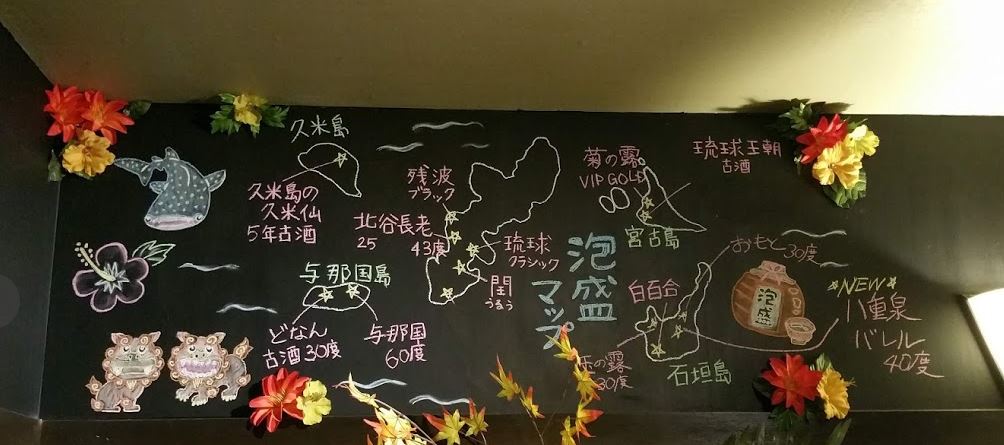 久米島
久米島の
久米仙
5年古酒
与那国島
どなん
古酒30度
与那国
60度
残波
ブラック
北谷長老
25
43度
琉球
クラシック
閏
うるう
泡盛
マップ
菊の露
VIP GOLD
琉球王朝
古酒
宮古島
おもと30度
白百合
の露
30度
石垣島
泡盛
*NEW*
八重泉
バレル
40度